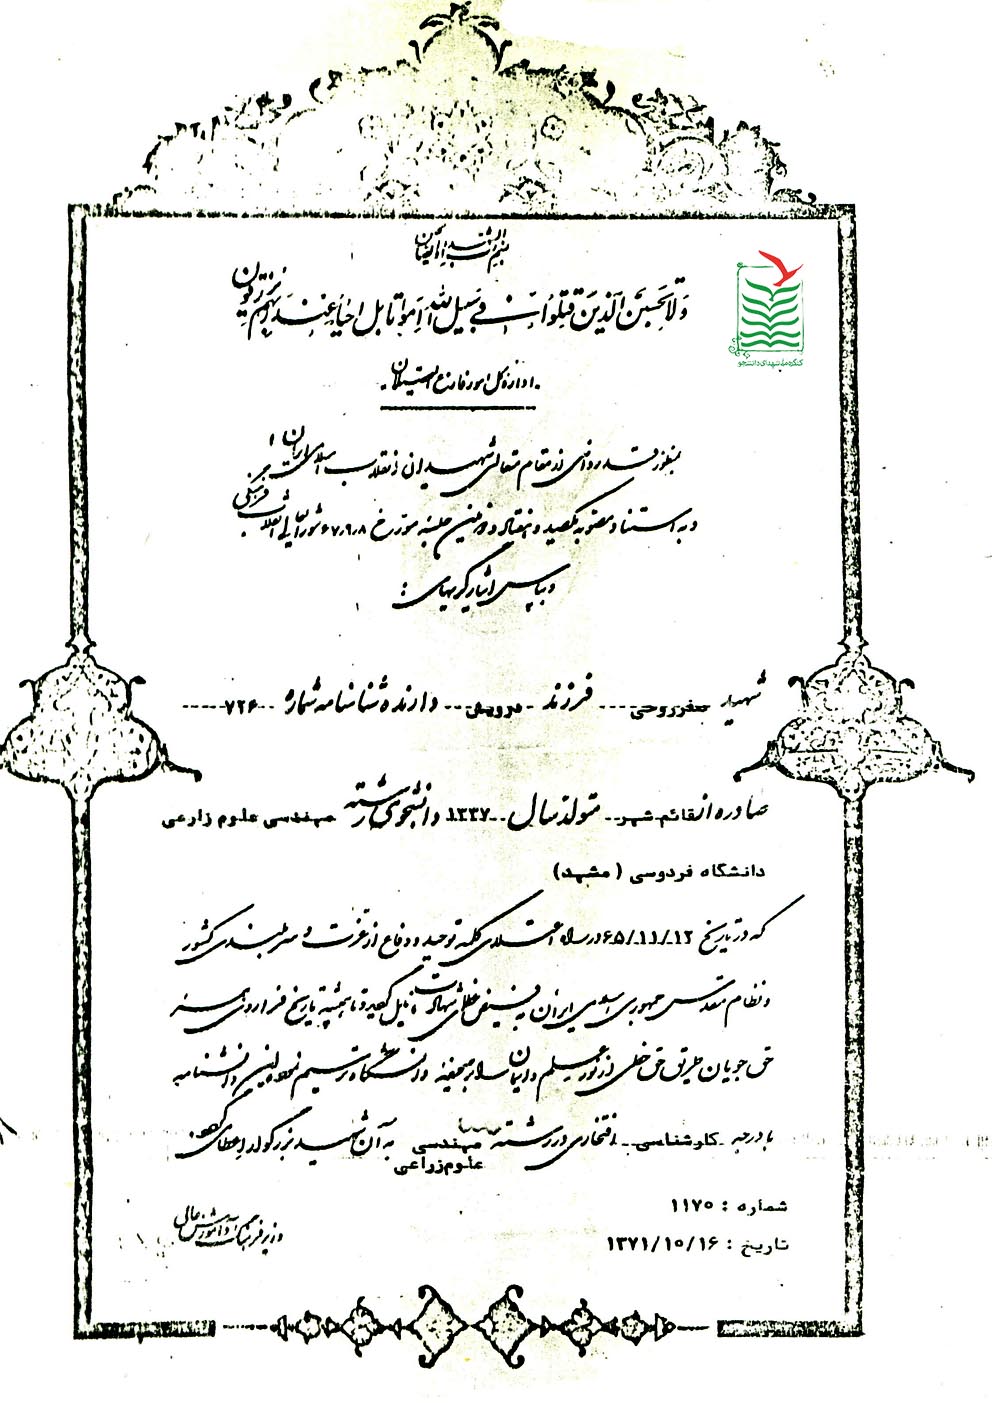 بسم رب الشهداء و الصدیقین
وَلا تَحسَبَنَّ الَّذینَ قُتِلوا فی سَبیلِ اللهِ اَمواتاً بَل اَحیاءٌ عِندَ رَبِّهِم یُرزَقون
کنگره ملی شهدای دانشجو
اداره کل امور فارغ التحصیلان
بمنظور قدردانی از مقام متعالی شهیدان انقلاب اسلامی ایران
و به استناد مصوبه یکصد و هفتاد و دومین جلسه مورخ ۶۷٫۹٫۸ شورایعالی انقلاب فرهنگی
و بپاس ایثارگریهای :
شهید جعفر روحی فرزند درویش دارنده شناسنامه شماره ۷۲۶
صادره از قائم شهر متولد سال ۱۳۳۷ دانشجوی رشته مهندسی علوم زارعی
دانشگاه فردوسی (مشهد)
که در تاریخ ۶۵/۱۱/۱۲ در راه اعتلای کلمه توحید و دفاع از عزت و سربلندی کشور
و نظام مقدس جمهوری اسلامی ایران به فیض عظمای شهادت نایل گردید و تا همیشه تاریخ فرا روی
حق جویان طریق حق خطی از نور علم و ایمان را بر صحیفه دانشگاه ترسیم نمود این دانشنامه
با درجه کارشناسی افتخاری در رشته مهندسی علوم‌زراعی به آن شهید بزرگوار اعطا می گردد.
شماره : ۱۱۷۵
تاریخ : ۱۳۷۱/۱۰/۱۶
وزیر فرهنگ و آموزش عالی